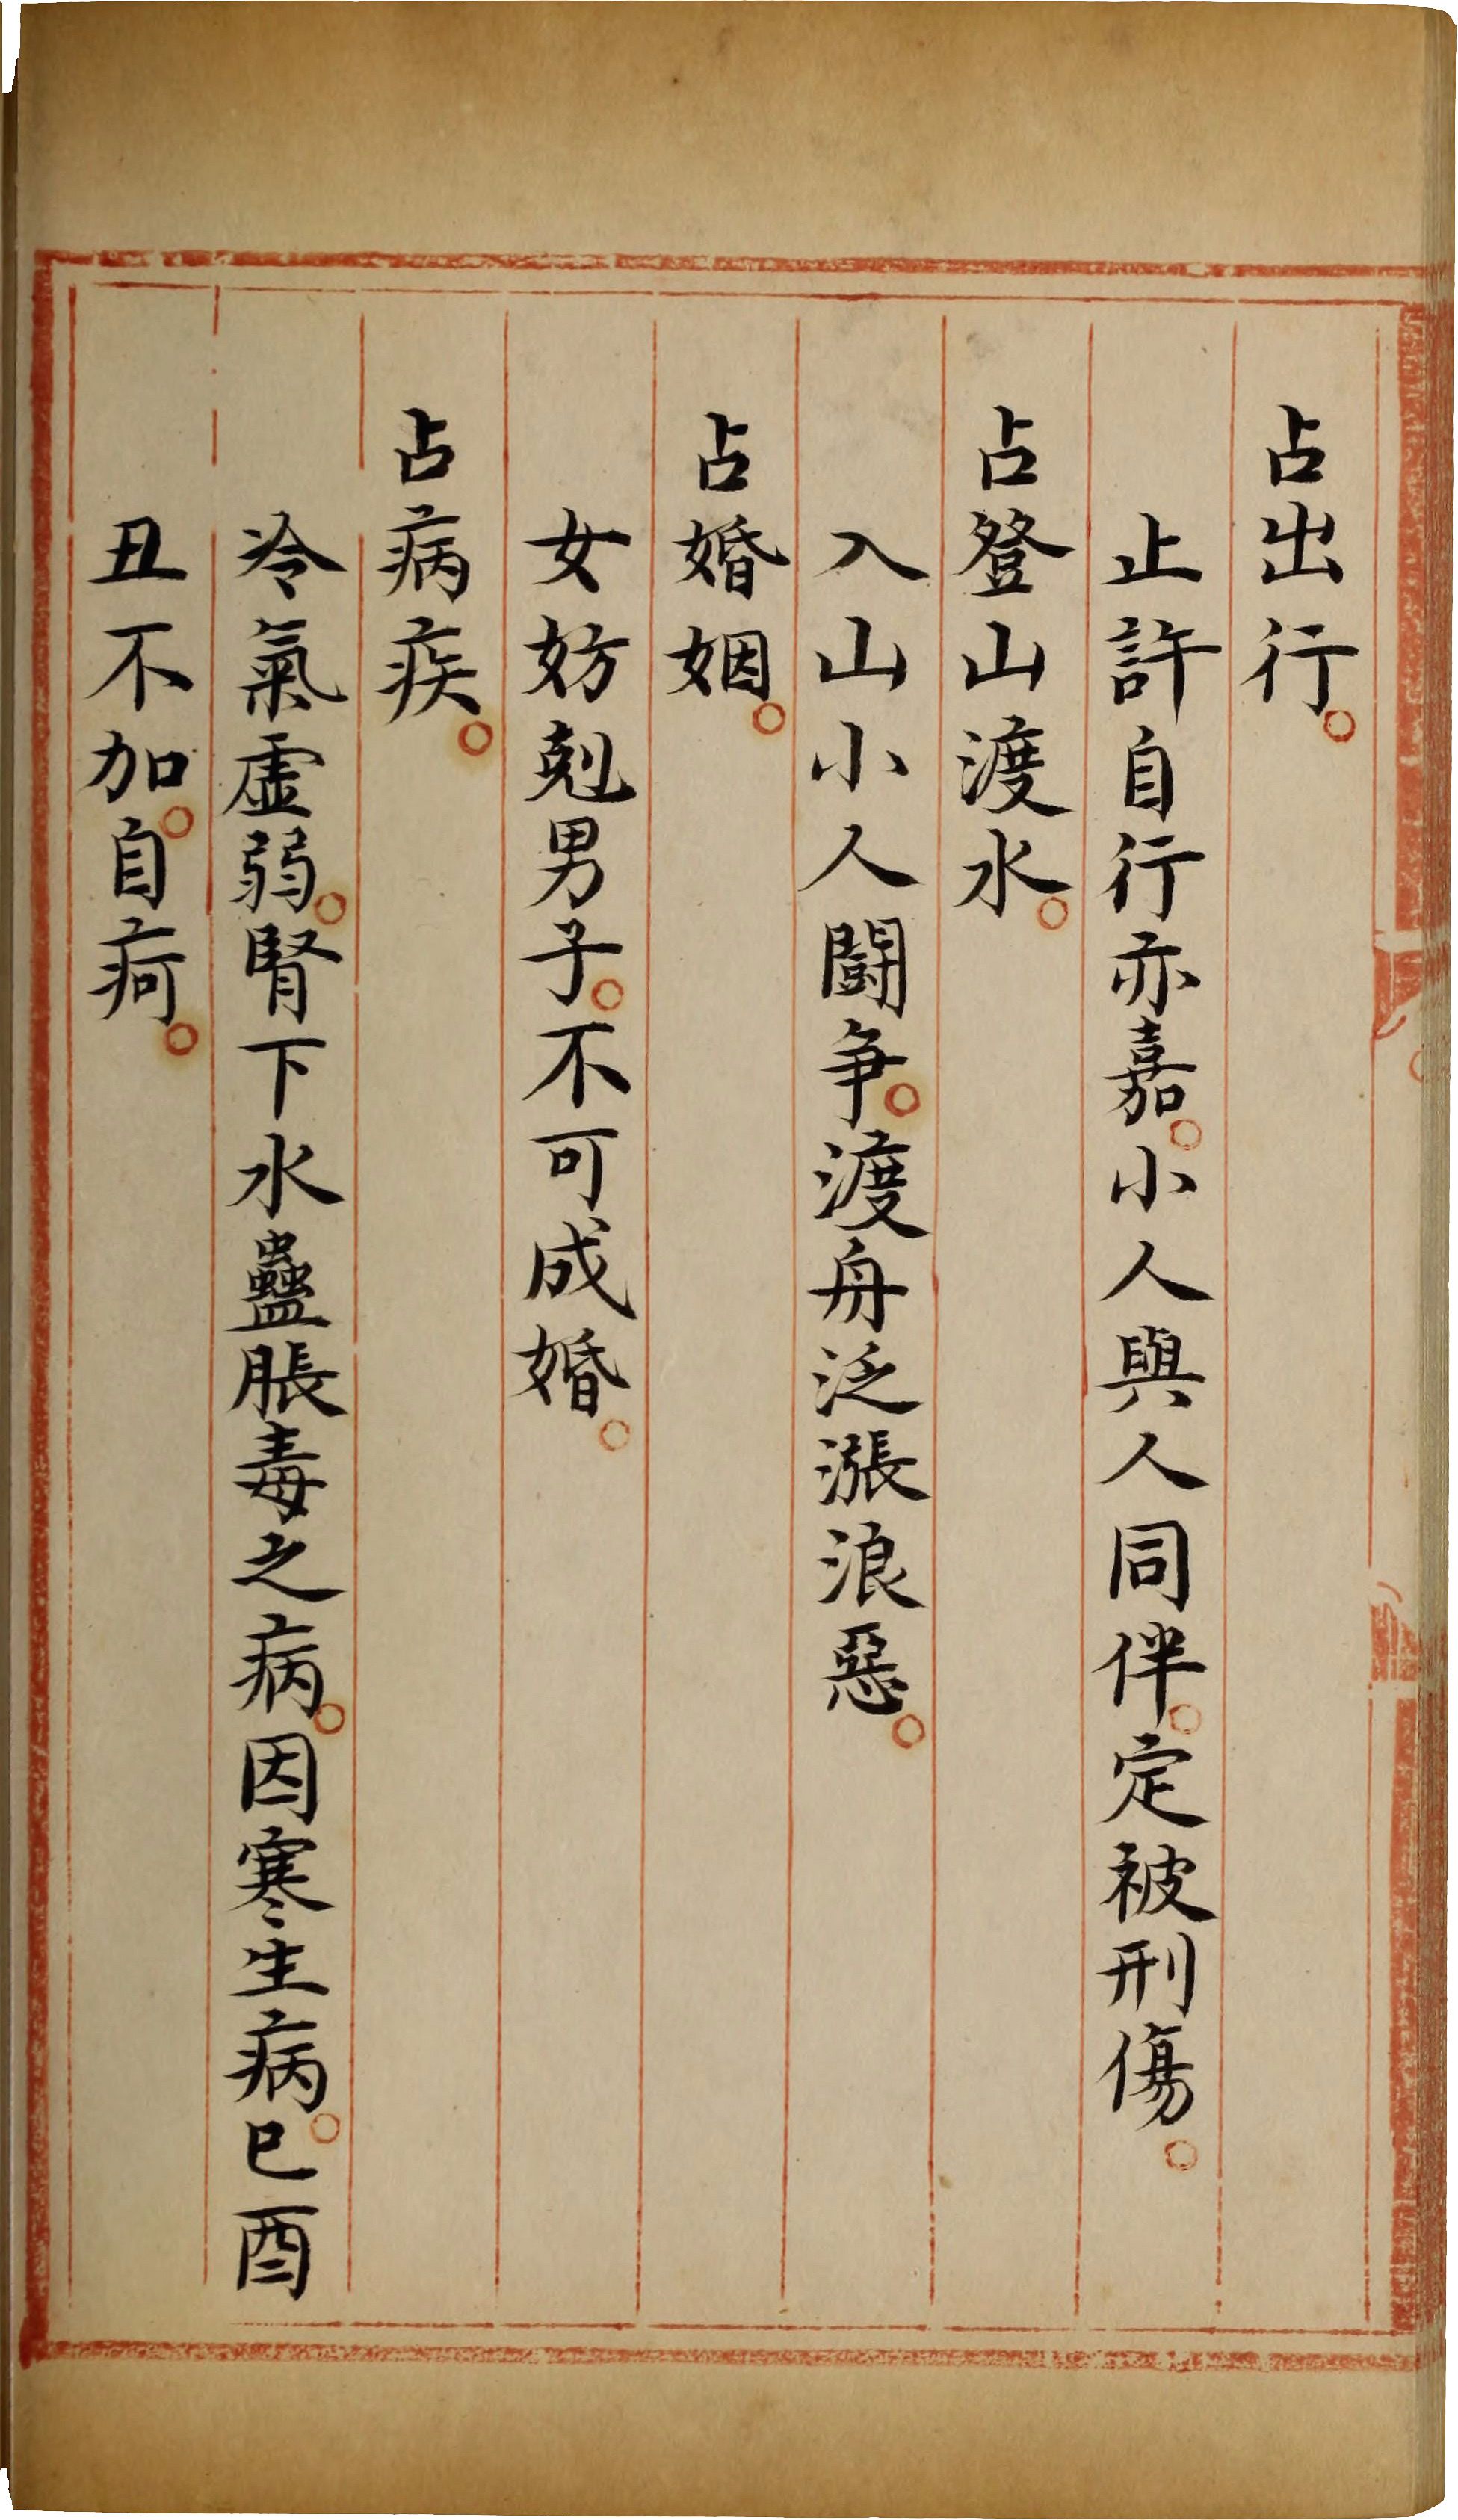 占出行。
止許自行亦嘉。小人與人同伴。定被刑傷。
占登山渡水。
入山小人鬪争。渡舟泛漲浪惡。
占婚姻。
女妨剋男子。不可成婚。
占病疾。
冷氣虛弱。腎下水蠱脹毒之病。因寒生病。巳酉
丑不加。自疴。